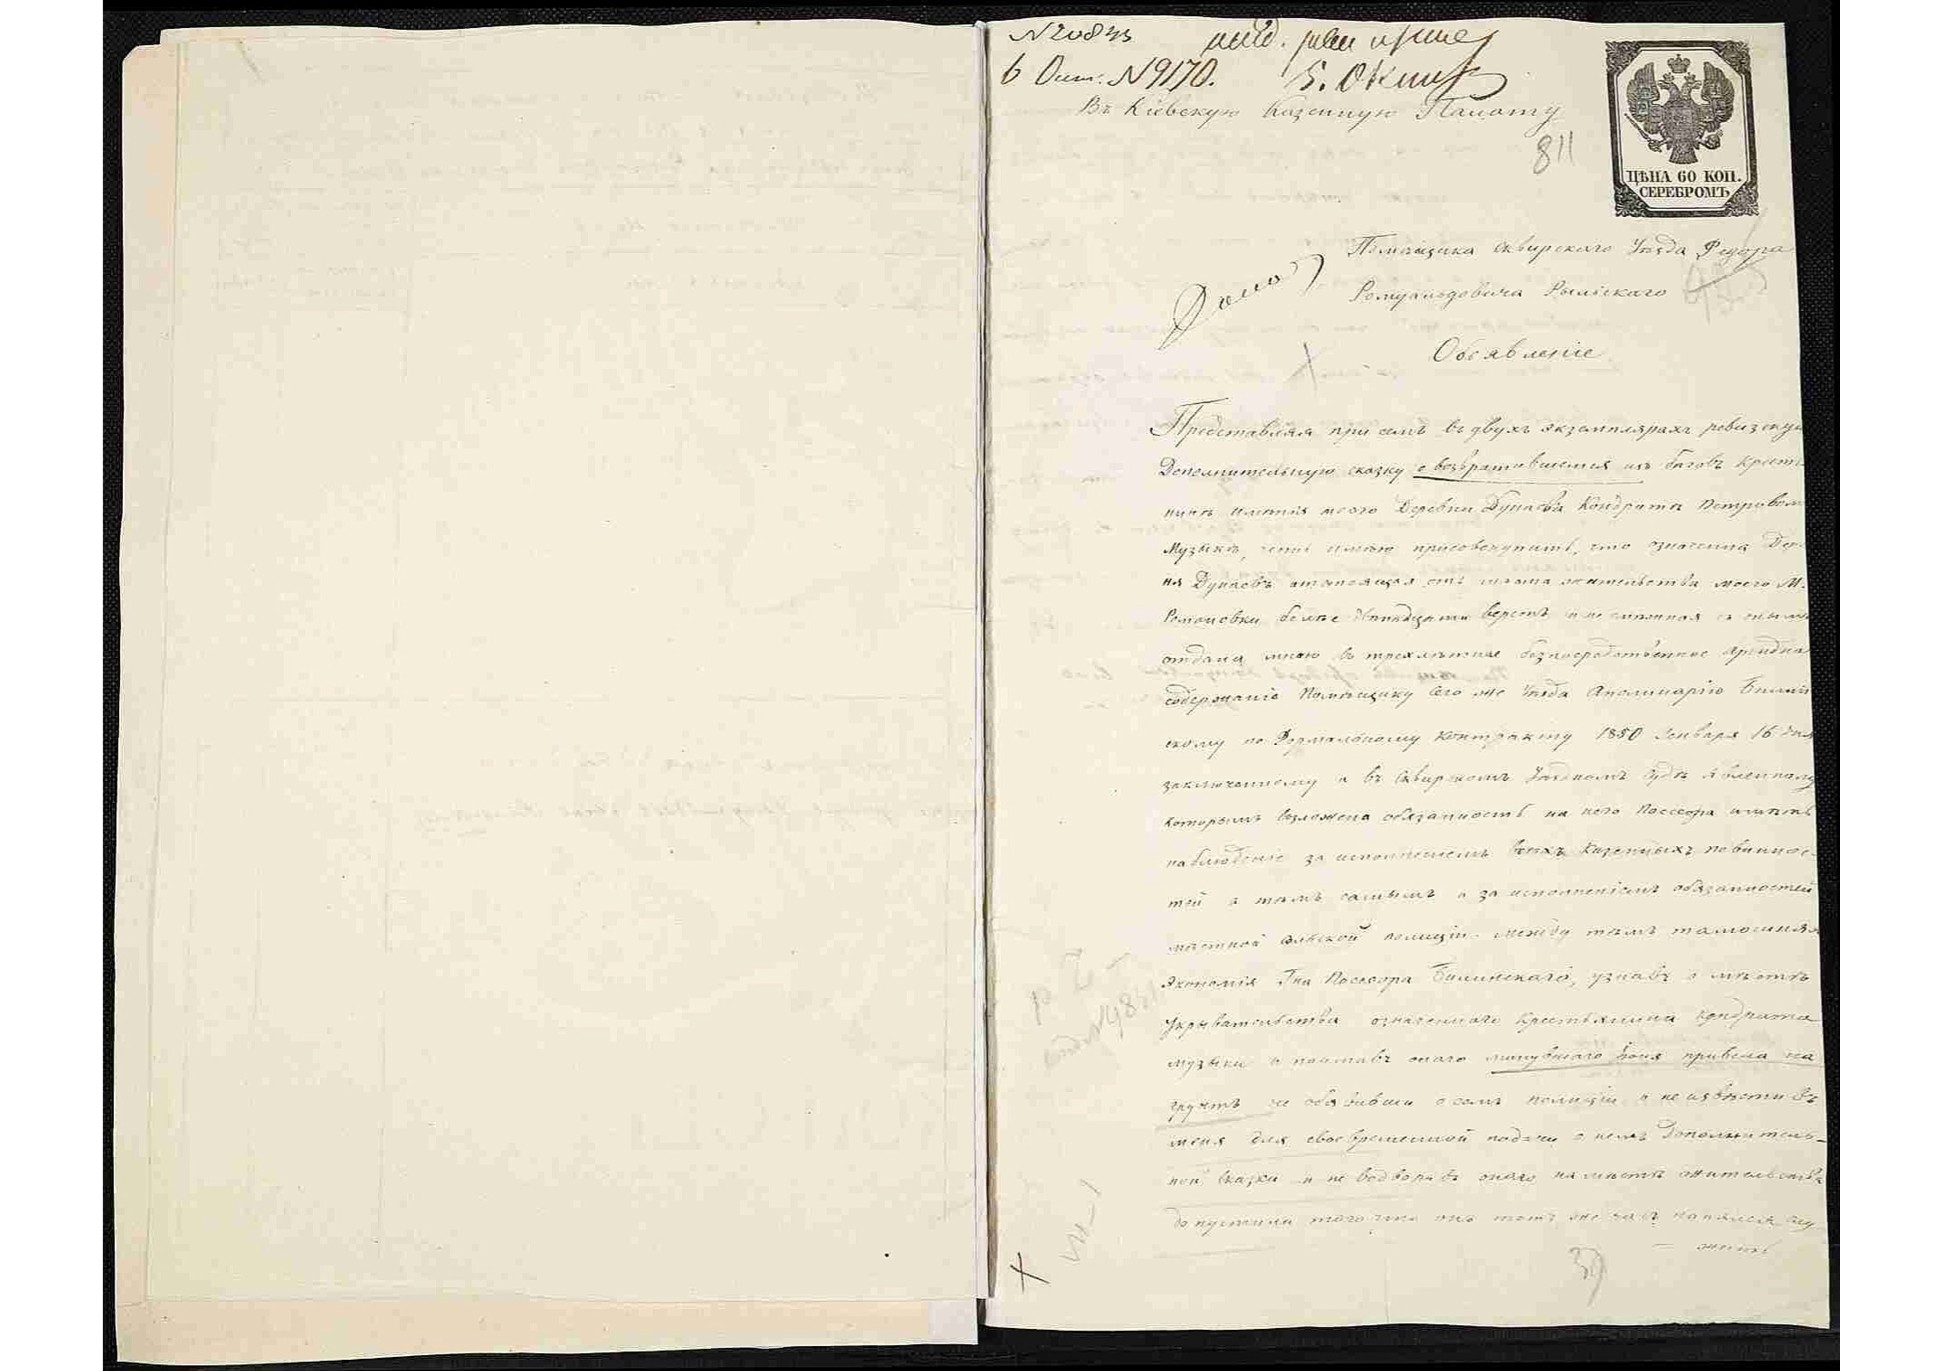 6 Окт. N9170. 5. Окт
Въ Кіевскую Казенную Палату
811
ЦѢНА 60 КОП.
СЕРЕБРОМЪ
Помѣщика Сквирскаго Уѣзда Федора
Ромуальдовича Рыльскаго
Объявленіе
Представляя при семъ въ двухъ экземплярахъ ревизскую
Дополнительную сказку о возвратившемся изъ бѣговъ крестья
нинѣ имѣнія моего Деревни Дунаевъ Кондратѣ Петровом
Музыкѣ, честь имѣю присовокупить, что означенна Дерев
ня Дунаевъ отстоящая отъ мѣста жительства моего М.
Романовки болѣе пятнадцати верстъ и не смежная съ онымъ
отдана мною въ трехлѣтнее безпосредственное арендна
содержаніе Помѣщику Сего же Уѣзда Аполинарію Билин
скому по Формальному Контракту 1850 Января 16 дня
заключенному и въ Сквирскомъ Уѣздномъ Судѣ явленному
которымъ возложена обязанность на него Поссесора имѣть
наблюденіе за исполненіемъ всѣхъ Казенныхъ повиннос-
тей а тѣмъ самымъ и за исполненіемъ обязанностей
мѣстной сельской полиціи. между тѣмъ тамошняя
Экономія Гна Поссесора Билинскаго, узнавъ о мѣстѣ
Укрывательства означеннаго Крестьянина Кондрата
Музыки и поймавъ онаго минувшаго Іюня привела на
грунтъ не объявивши о семъ полиціи и не извѣстивъ
меня для своевременной подачи о немъ Дополнитель-
ной Сказки и не водворивъ онаго на мѣстѣ жительства
допустила того что онъ тотъ же часъ нанялся слу
= жить
39